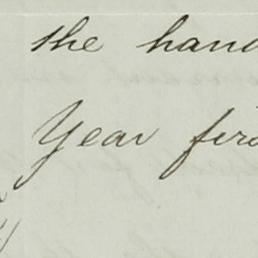 the hand
Year firs